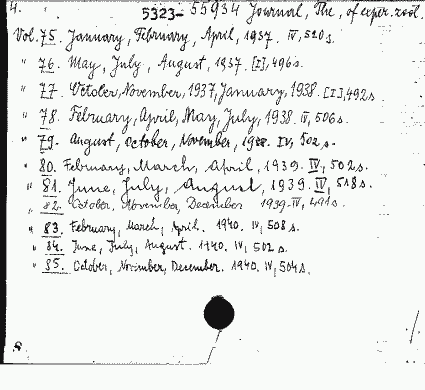 4. 5323-55934 Journal, The, of exper. zool.
Vol. 75. January, February, April, 1937. IV, 520 s.
" 76. May, July, August, 1937. [I], 496 s.
" 77. October, November, 1937, January, 1938. [I], 492 s.
" 78. February, April, May, July, 1938. IV, 506 s.
" 79. August, October, November, 1938. IV, 502 s.
" 80. February, March, April, 1939. IV, 502 s.
" 81. June, July, August, 1939. IV, 518 s.
" 82. October, November, December 1939. IV, 491 s.
" 83. February, March, April. 1940. IV, 508 s.
" 84. June, July, August. 1940. IV, 502 s.
" 85. October, November, December. 1940. IV, 504 s.
8